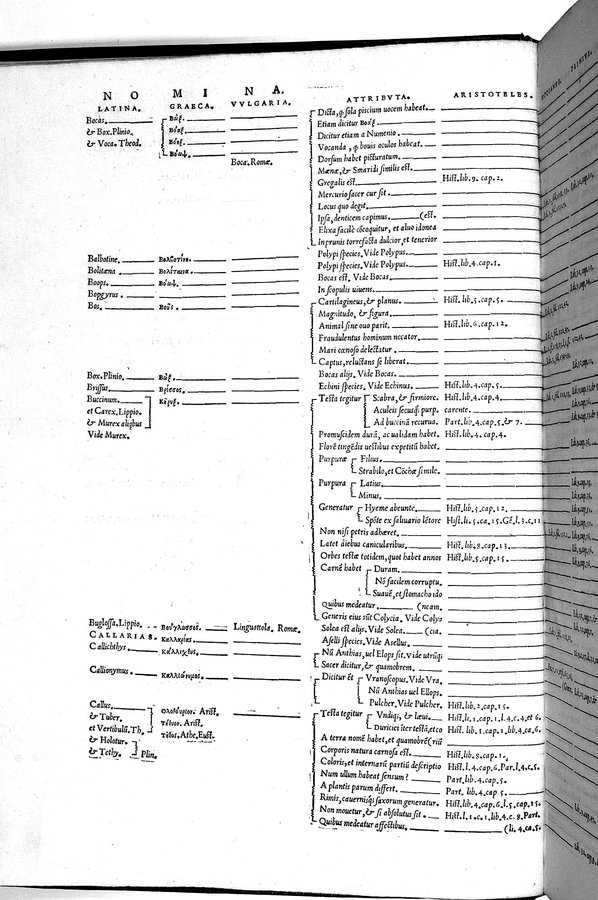 NOMINA.
LATINA. GRAECA. VVLGARIA. ATTRIBVTA. ARISTOTELES.
Bocas. Βόαξ. Dicta, q sola piscium uocem habeat.
& Box. Plinio. Βόηξ. Etiam dicitur
& Voca. Theod. Βῶξ. Dicitur etiam a Numenio.
Βόωψ. Vocanda, q bouis oculos habeat.
Boca. Romæ. Dorsum habet picturatum.
Mænæ, & Smaridi similis est.
Gregalis est. Hist. lib. 9. cap. 2.
Mercurio sacer cur sit.
Locus quo degit.
Ipsa, denticem capimus. (est.
Elixa facilè cōcoquitur, et aluo idonea
Inprunis torrefacta dulcior, et tenerior
Balbotine. Polypi species. Vide Polypus.
Bolitæna Βολίταινα. Polypi species. Vide Polypus. Hist. lib. 4. cap. 1.
Boops. Βόωψ. Bocas est. Vide Bocas.
Bopgyrus. In scopulis uiuens.
Bos. Βοῦς. Cartilagineus, & planus. Hist. lib. 5. cap. 5.
Magnitudo, & figura.
Animal sine ouo parit. Hist. lib. 6. cap. 12.
Fraudulentus hominum necator.
Mari cœnoso delectatur.
Captus, reluctans se liberat.
Box. Plinio. Βόαξ. Bocas alijs. Vide Bocas.
Brissus. Βρίσσος. Echini species. Vide Echinus. Hist. lib. 4. cap. 5.
Buccinum. Κῆρυξ. Testa tegitur Scabra, & firmiore. Hist. lib. 4. cap. 4.
et Carex. Lippio. Aculeis secusq; purp. carente.
& Murex aliqbus Ad buccinā recurua. Part. lib. 4. cap. 5. & 7.
Vide Murex. Promuscidem durā, ac ualidam habet. Hist. lib. 4. cap. 4.
Florē tingēdis uestibus expetitū habet.
Purpuræ Filius.
Strabilo, et Cōchæ simile.
Purpura Latius.
Minus.
Generatur Hyeme abeunte. Hist. lib. 5. cap. 12.
Spōte ex saliuario lētore Hist. li. 5. ca. 15. Gē. l. 3. c. 11
Non nisi petris adhæret.
Latet diebus canicularibus. Hist. lib. 8. cap. 13.
Orbes testæ totidem, quot habet annos Hist. lib. 5. cap. 15.
Carnē habet Duram.
Nō facilem corruptu.
Suauē, et stomacho ido
Quibus medeatur (neam.
Generis eius sūt Colycia. Vide Colyo
Buglossa. Lippio. Βούγλωσσος. Linguattola. Romæ. Solea est alijs. Vide Solea. (cia.
CALLARIAS. Καλλαρίας. Aselli species. Vide Asellus.
Callichthys. Κάλλιχθυς. Nū Anthias, uel Elops sit. Vide utrūq;
Sacer dicitur, & quamobrem.
Callionymus. Καλλιώνυμος. Dicitur ēt Vranoscopus. Vide Vra.
Nū Anthias uel Ellops.
Pulcher. Vide Pulcher. Hist. lib. 2. cap. 15.
Callus. Ὁλοθούριον. Arist. Testa tegitur Vndiq;, & læui. Hist. li. 1. cap. 1. l. 4. c. 4. et 6.
& Tuber. Τήθυον. Arist. Duriciei iter testā, et co Hist. lib. 1. cap. 1. lib. 4. ca. 6.
et Vertibulū. Th. Τῆθος. Athe. Eust. A terra nomē habet, et quamobrē (riū
& Holotur. Corporis natura carnosa est. Hist. lib. 8. cap. 1.
& Tethy. Plin. Coloris, et internarū partiū descriptio Hist. l. 4. cap. 6. Par. l. 4. c. 5.
Num ullum habeat sensum? Part. lib. 4. cap. 5.
A plantis parum differt. Part. lib. 4. cap. 5.
Rimis, cauernisq; saxorum generatur. Hist. lib. 4. cap. 6. l. 5. cap. 15.
Non mouetur, & si absolutus sit. Hist. l. 1. c. 1. lib. 4. c. 8. Part.
Quibus medeatur affectibus. (li. 4. ca. 5.